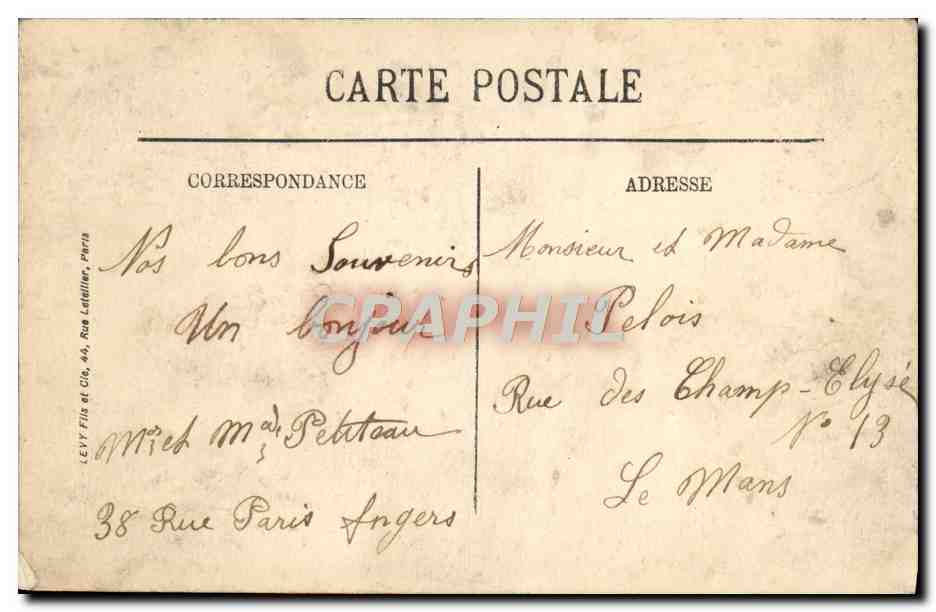 CARTE POSTALE
CORRESPONDANCE
ADRESSE
LEVY Fils et Cie, 44, Rue Letellier, Paris
Nos bons Souvenirs
Un bonjour
Mr et Mad Petiteau
38 Rue Paris Angers
Monsieur et Madame
Pelois
Rue des Champ-Elysé
No 13
Le Mans
CPAPHIL